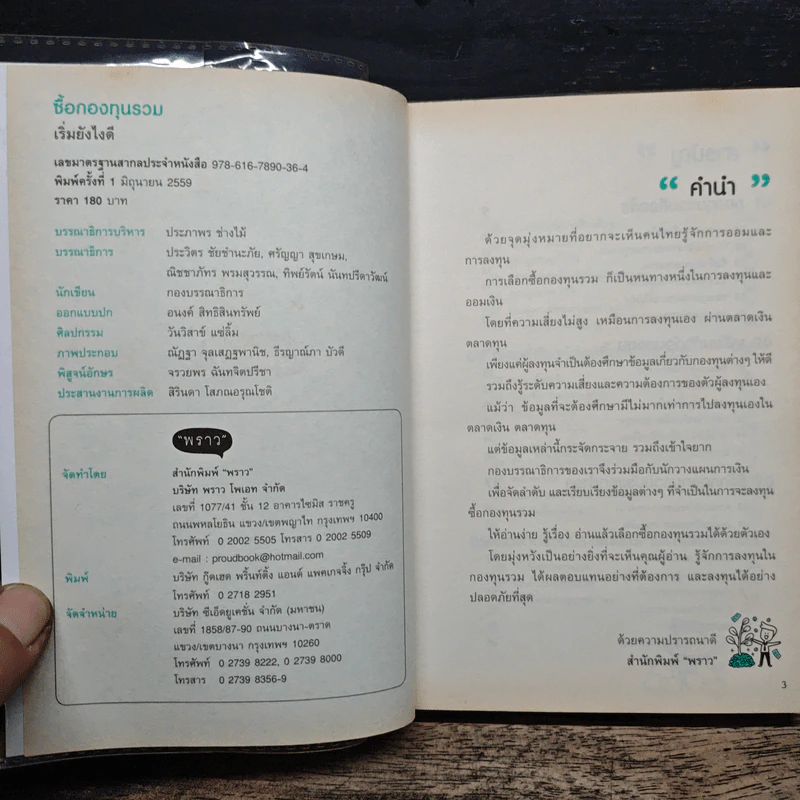 ซื้อกองทุนรวม
เริ่มยังไงดี
เลขมาตรฐานสากลประจำหนังสือ 978-616-7890-36-4
พิมพ์ครั้งที่ 1 มิถุนายน 2559
ราคา 180 บาท
บรรณาธิการบริหาร ประภาพร ช่างไม้
บรรณาธิการ ประวิตร ชัยชำนะภัย, ศรัญญา สุขเกษม,
ณิชชาภัทร พรมสุวรรณ, ทิพย์รัตน์ นันทปรีดาวัฒน์
นักเขียน กองบรรณาธิการ
ออกแบบปก อนงค์ สิทธิสินทรัพย์
ศิลปกรรม วันวิสาข์ แซ่ลิ้ม
ภาพประกอบ ณัฏฐา จุลเสฏฐพานิช, ธีรญาณ์ภา บัวดี
พิสูจน์อักษร จรวยพร ฉันทจิตปรีชา
ประสานงานการผลิต สิรินดา โสภณอรุณโชติ
"พราว"
จัดทำโดย สำนักพิมพ์ "พราว"
บริษัท พราว โพเอท จำกัด
เลขที่ 1077/41 ชั้น 12 อาคารไซมิส ราชครู
ถนนพหลโยธิน แขวง/เขตพญาไท กรุงเทพฯ 10400
โทรศัพท์ 0 2002 5505 โทรสาร 0 2002 5509
e-mail : proudbook@hotmail.com
พิมพ์ บริษัท กู๊ดเฮด พริ้นท์ติ้ง แอนด์ แพคเกจจิ้ง กรุ๊ป จำกัด
โทรศัพท์ 0 2718 2951
จัดจำหน่าย บริษัท ซีเอ็ดยูเคชั่น จำกัด (มหาชน)
เลขที่ 1858/87-90 ถนนบางนา-ตราด
แขวง/เขตบางนา กรุงเทพฯ 10260
โทรศัพท์ 0 2739 8222, 0 2739 8000
โทรสาร 0 2739 8356-9
“ คำนำ ”
ด้วยจุดมุ่งหมายที่อยากจะเห็นคนไทยรู้จักการออมและ
การลงทุน
การเลือกซื้อกองทุนรวม ก็เป็นหนทางหนึ่งในการลงทุนและ
ออมเงิน
โดยที่ความเสี่ยงไม่สูง เหมือนการลงทุนเอง ผ่านตลาดเงิน
ตลาดทุน
เพียงแค่ผู้ลงทุนจำเป็นต้องศึกษาข้อมูลเกี่ยวกับกองทุนต่างๆ ให้ดี
รวมถึงรู้ระดับความเสี่ยงและความต้องการของตัวผู้ลงทุนเอง
แม้ว่า ข้อมูลที่จะต้องศึกษามีไม่มากเท่าการไปลงทุนเองใน
ตลาดเงิน ตลาดทุน
แต่ข้อมูลเหล่านี้กระจัดกระจาย รวมถึงเข้าใจยาก
กองบรรณาธิการของเราจึงร่วมมือกับนักวางแผนการเงิน
เพื่อจัดลำดับ และเรียบเรียงข้อมูลต่างๆ ที่จำเป็นในการจะลงทุน
ซื้อกองทุนรวม
ให้อ่านง่าย รู้เรื่อง อ่านแล้วเลือกซื้อกองทุนรวมได้ด้วยตัวเอง
โดยมุ่งหวังเป็นอย่างยิ่งที่จะเห็นคุณผู้อ่าน รู้จักการลงทุนใน
กองทุนรวม ได้ผลตอบแทนอย่างที่ต้องการ และลงทุนได้อย่าง
ปลอดภัยที่สุด
ด้วยความปรารถนาดี
สำนักพิมพ์ "พราว"
3